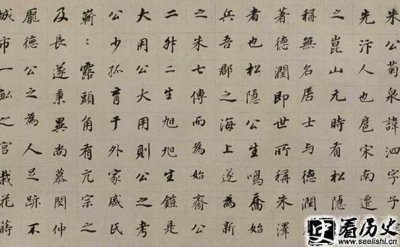 朱公菊泉諱泗字子
先汴人也宋南渡
之崑山元時有
稱無名居士與德
著德潤即世所稱澤
者也松隱公生鳴喬始
兵吾郡之海上公為新
之朱二七傳而始齋公
二卅二公生旭生鎧是
大用公大用公之考
公少孤育于外家戚民
嶄露頭角于公亢宗
及長遂秉異尚慕閔仲
龐德公之為人足跡不
城市一畝之宫栽花蒔
看历史
www.seelishi.cn